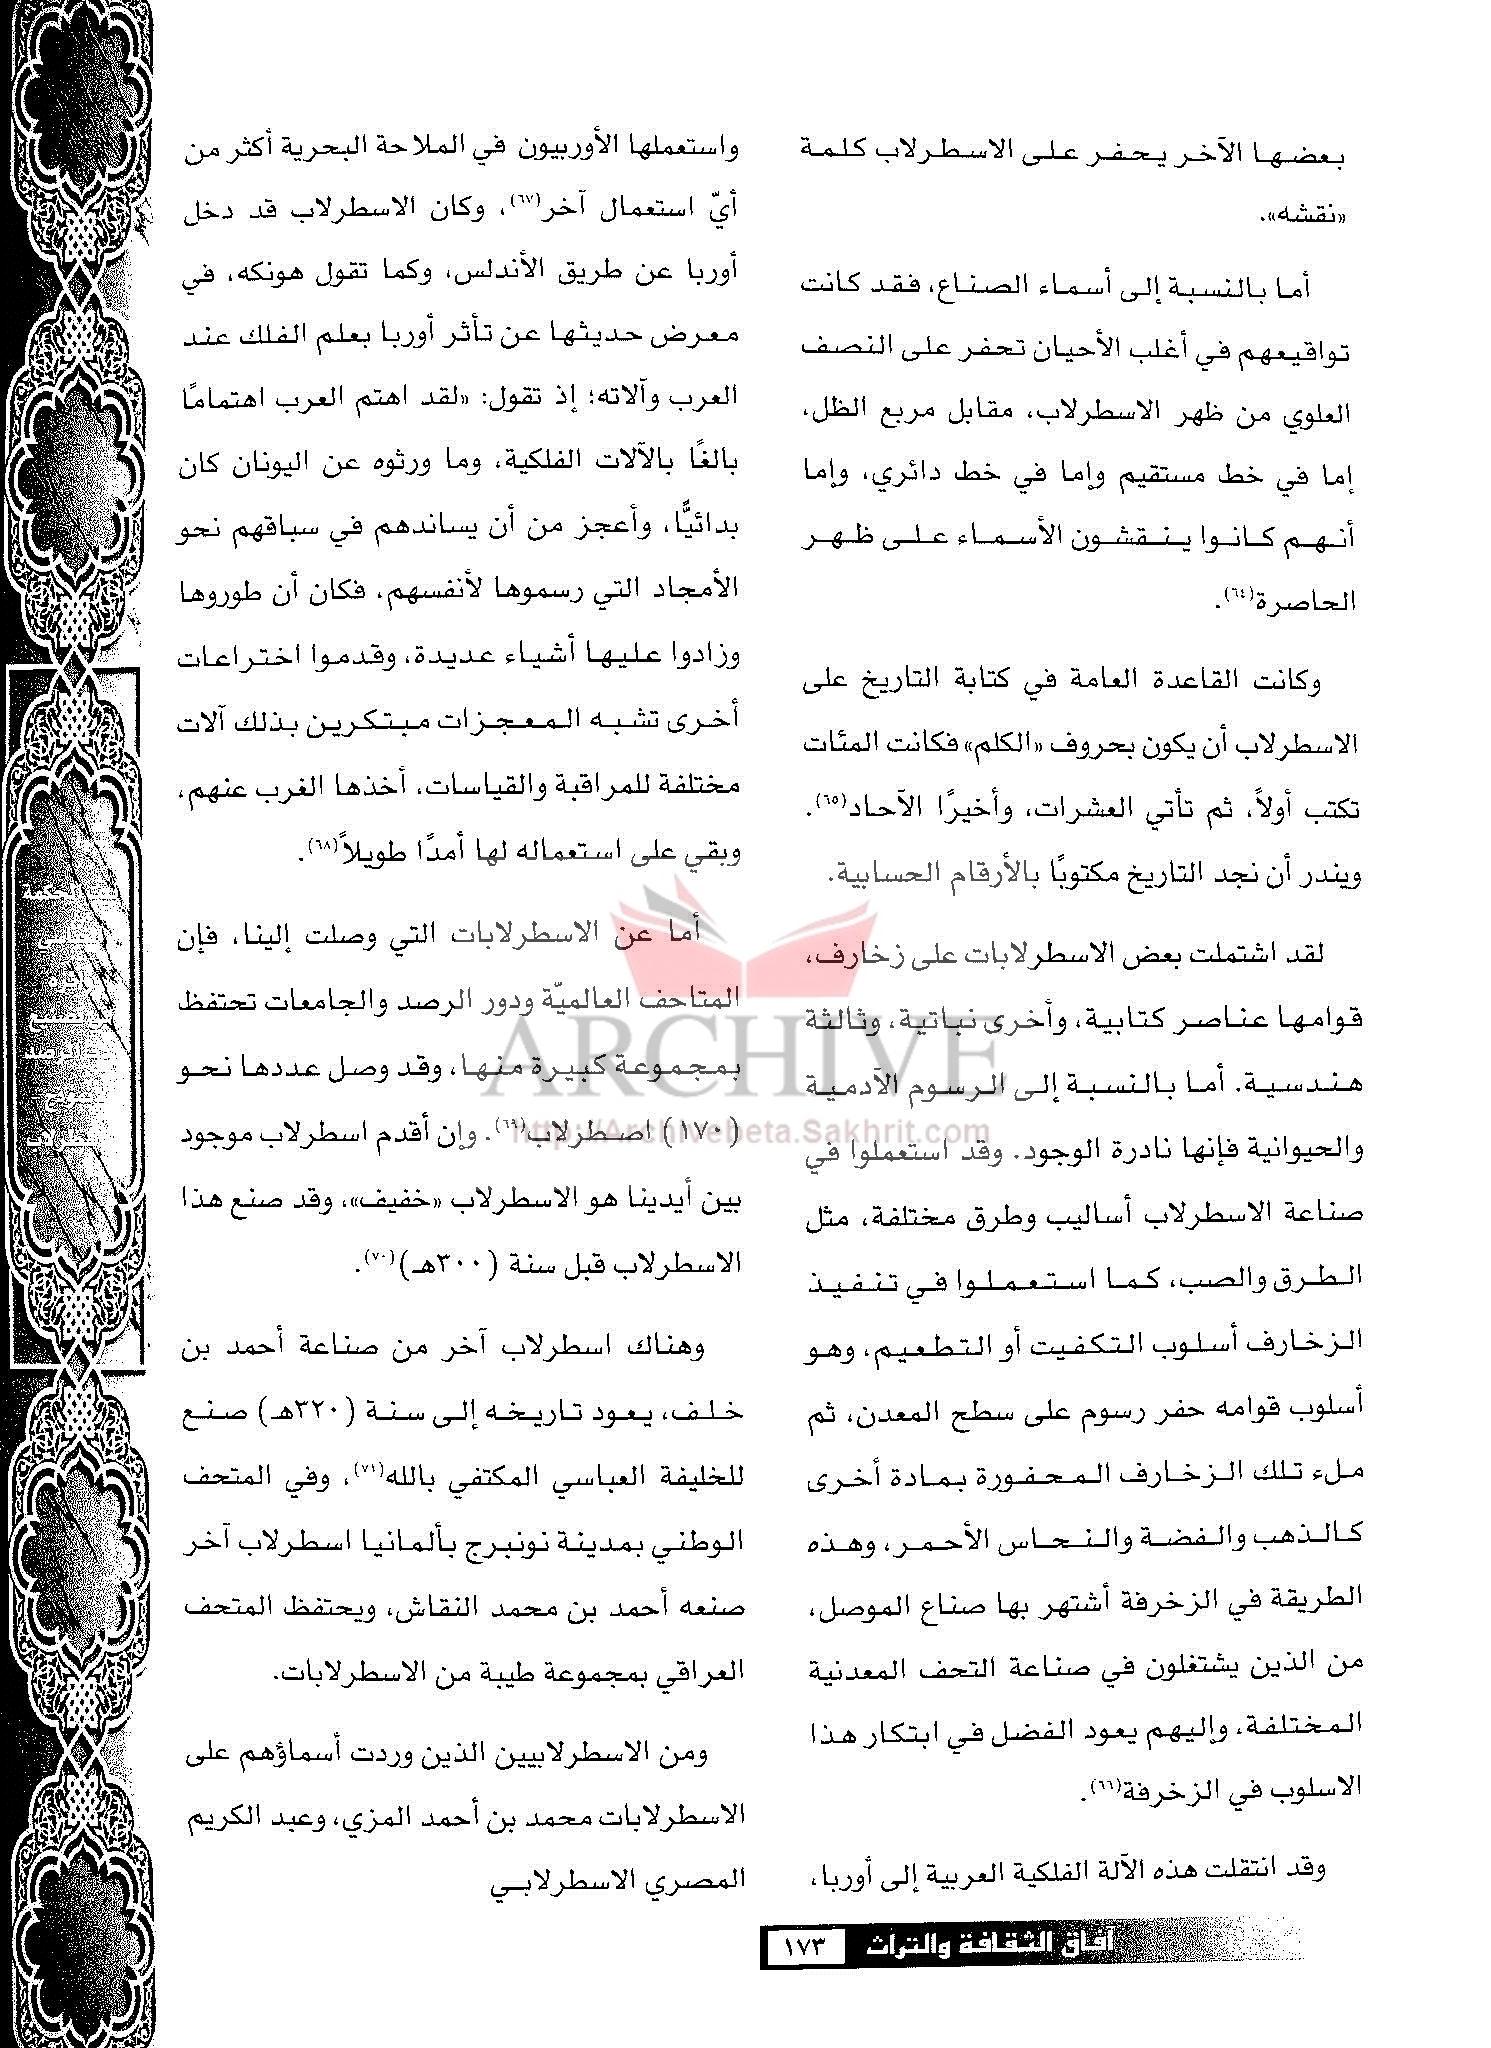 بعضها الآخر يحفر على الاسطرلاب كلمة
«نقشه».
أما بالنسبة إلى أسماء الصناع، فقد كانت
تواقيعهم في أغلب الأحيان تحفر على النصف
العلوي من ظهر الاسطرلاب، مقابل مربع الظل،
إما في خط مستقيم وإما في خط دائري، وإما
أنهم كانوا ينقشون الأسماء على ظهر
الحاصرة(٦٤).
وكانت القاعدة العامة في كتابة التاريخ على
الاسطرلاب أن يكون بحروف «الكلم» فكانت المئات
تكتب أولاً، ثم تأتي العشرات، وأخيرًا الآحاد(٦٥).
ويندر أن نجد التاريخ مكتوبًا بالأرقام الحسابية.
لقد اشتملت بعض الاسطرلابات على زخارف،
قوامها عناصر كتابية، وأخرى نباتية، وثالثة
هندسية. أما بالنسبة إلى الرسوم الآدمية
والحيوانية فإنها نادرة الوجود. وقد استعملوا في
صناعة الاسطرلاب أساليب وطرق مختلفة، مثل
الطرق والصب، كما استعملوا في تنفيذ
الزخارف أسلوب التكفيت أو التطعيم، وهو
أسلوب قوامه حفر رسوم على سطح المعدن، ثم
ملء تلك الزخارف المحفورة بمادة أخرى
كالذهب والفضة والنحاس الأحمر، وهذه
الطريقة في الزخرفة أشتهر بها صناع الموصل،
من الذين يشتغلون في صناعة التحف المعدنية
المختلفة، وإليهم يعود الفضل في ابتكار هذا
الاسلوب في الزخرفة(٦٦).
وقد انتقلت هذه الآلة الفلكية العربية إلى أوربا،
واستعملها الأوربيون في الملاحة البحرية أكثر من
أيّ استعمال آخر(٦٧)، وكان الاسطرلاب قد دخل
أوربا عن طريق الأندلس، وكما تقول هونكه، في
معرض حديثها عن تأثر أوربا بعلم الفلك عند
العرب وآلاته؛ إذ تقول: «لقد اهتم العرب اهتمامًا
بالغًا بالآلات الفلكية، وما ورثوه عن اليونان كان
بدائيًّا، وأعجز من أن يساندهم في سباقهم نحو
الأمجاد التي رسموها لأنفسهم، فكان أن طوروها
وزادوا عليها أشياء عديدة، وقدموا اختراعات
أخرى تشبه المعجزات مبتكرين بذلك آلات
مختلفة للمراقبة والقياسات، أخذها الغرب عنهم،
وبقي على استعماله لها أمدًا طويلاً(٦٨).
أما عن الاسطرلابات التي وصلت إلينا، فإن
المتاحف العالميّة ودور الرصد والجامعات تحتفظ
بمجموعة كبيرة منها، وقد وصل عددها نحو
(١٧٠) اصطرلاب(٦٩). وإن أقدم اسطرلاب موجود
بين أيدينا هو الاسطرلاب «خفيف»، وقد صنع هذا
الاسطرلاب قبل سنة (٣٠٠هـ)(٧٠).
وهناك اسطرلاب آخر من صناعة أحمد بن
خلف، يعود تاريخه إلى سنة (٣٢٠هـ) صنع
للخليفة العباسي المكتفي بالله(٧١)، وفي المتحف
الوطني بمدينة نونبرج بألمانيا اسطرلاب آخر
صنعه أحمد بن محمد النقاش، ويحتفظ المتحف
العراقي بمجموعة طيبة من الاسطرلابات.
ومن الاسطرلابيين الذين وردت أسماؤهم على
الاسطرلابات محمد بن أحمد المزي، وعبد الكريم
المصري الاسطرلابي
ARCHIVE
http://Archivebeta.Sakhrit.com
آفاق الثقافة والتراث ١٧٣